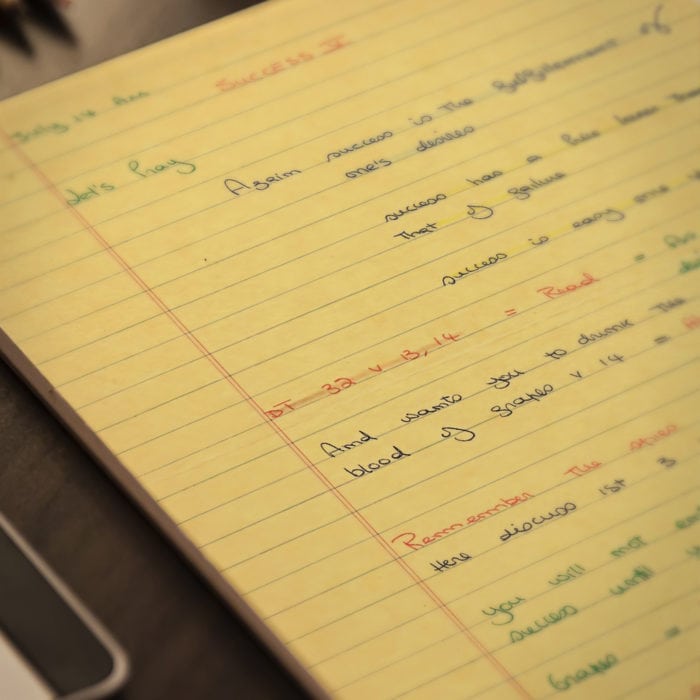 SUCCESS V
July 17 Am
Let's Pray
Again success is the fulfillment of
one's desires
success has a
That of failure
success is easy one
DT 32 v 13, 14 = Read =
And wants you to drink the
blood of grapes v 14 =
Remember The spies
Here discuss 1st 3
you will not
success until
Grapes =